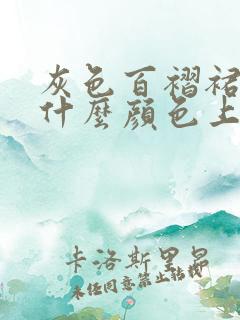 灰色百褶裙
什麼顏色上
卡洛斯里昂
未任同意禁止转载